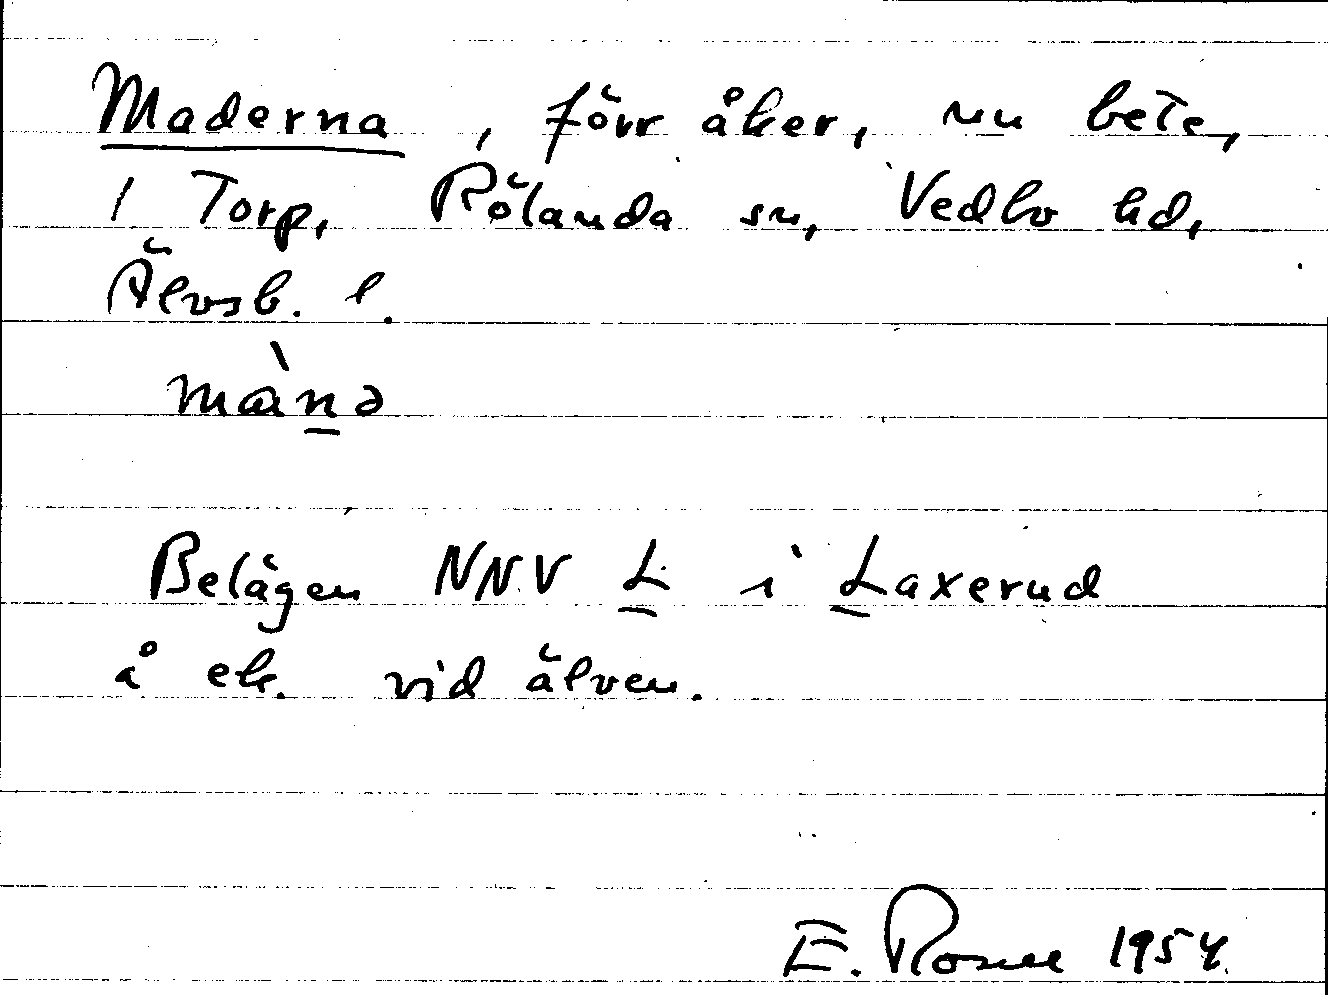 Maderna, förr åker, nu bete,
1 Torp, Rölanda sn, Vedbo hd,
Älvsb. l.
mànə
Belägen NNV L i Laxerud
å ek. vid älven.
E. Rosell 1954.